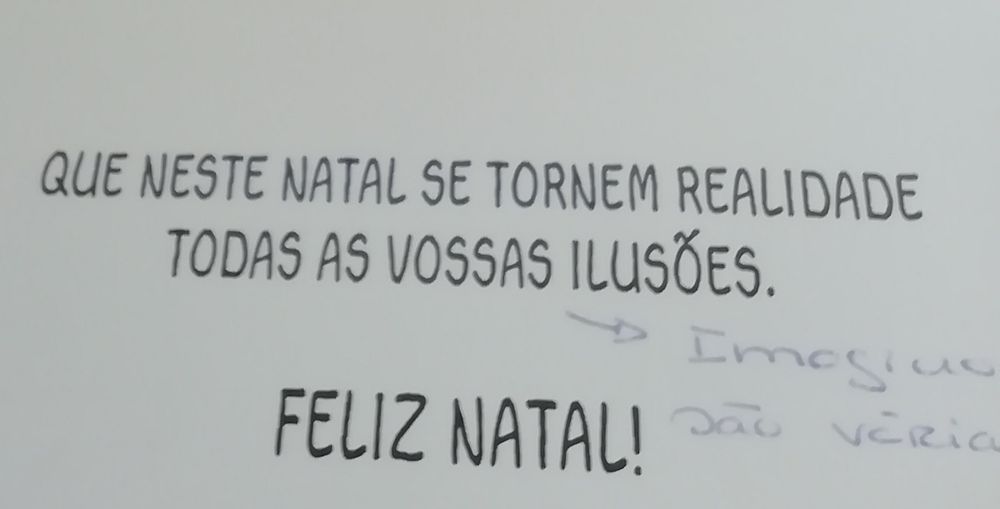 QUE NESTE NATAL SE TORNEM REALIDADE
TODAS AS VOSSAS ILUSÕES.
FELIZ NATAL!
são